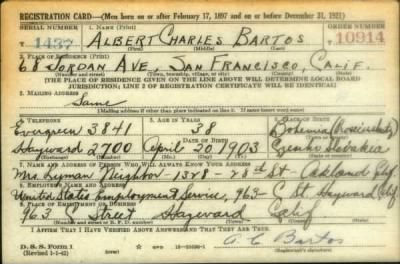 REGISTRATION CARD—(Men born on or after February 17, 1897 and on or before December 31, 1921)
SERIAL NUMBER 1. NAME (Print) ORDER NUMBER
T 1437 ALBERT CHARLES BARTOS 10914
(First) (Middle) (Last)
2. PLACE OF RESIDENCE (Print)
68 JORDAN AVE, SAN FRANCISCO, CALIF.
(Number and street) (Town, township, village, or city) (County) (State)
[THE PLACE OF RESIDENCE GIVEN ON THE LINE ABOVE WILL DETERMINE LOCAL BOARD
JURISDICTION; LINE 2 OF REGISTRATION CERTIFICATE WILL BE IDENTICAL]
3. MAILING ADDRESS
Same
[Mailing address if other than place indicated on line 2. If same insert word same]
4. TELEPHONE 5. AGE IN YEARS 6. PLACE OF BIRTH
Evergreen 3841 38 Bohemia
DATE OF BIRTH
Hayward 2700 April 20 1903 Czecho Slovakia
(Exchange) (Number) (Mo.) (Day) (Yr.) (State or country)
7. NAME AND ADDRESS OF PERSON WHO WILL ALWAYS KNOW YOUR ADDRESS
Mrs. Lyman Neighbor - 528 - 28th St - Oakland Calif
8. EMPLOYER'S NAME AND ADDRESS
United States Employment Service, 963 - C St Hayward Calif
9. PLACE OF EMPLOYMENT OR BUSINESS
963 C Street Hayward Calif
(Number and street or R. F. D. number) (Town) (County) (State)
I AFFIRM THAT I HAVE VERIFIED ABOVE ANSWERS AND THAT THEY ARE TRUE.
D. S. S. Form 1
(Revised 1-1-42) (over) A. C. Bartos
(Registrant's signature)